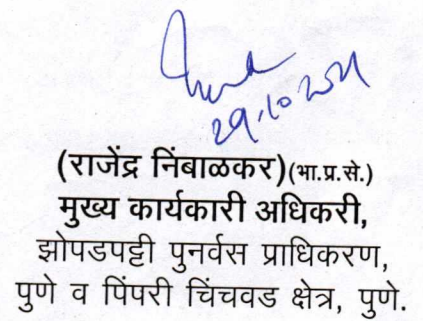 29.10.2021
(राजेंद्र निंबाळकर)(भा.प्र.से.)
मुख्य कार्यकारी अधिकरी,
झोपडपट्टी पुनर्वस प्राधिकरण,
पुणे व पिंपरी चिंचवड क्षेत्र, पुणे.